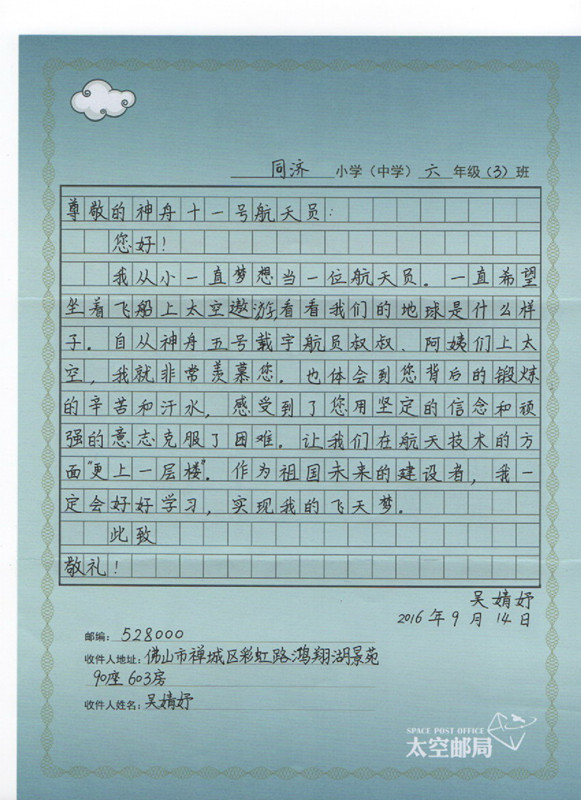 同济 小学（中学） 六 年级（3）班
尊敬的神舟十一号航天员：
您好！
我从小一直梦想当一位航天员。一直希望
坐着飞船上太空遨游看看我们的地球是什么样
子。自从神舟五号载宇航员叔叔、阿姨们上太
空，我就非常羡慕您。也体会到您背后的锻炼
的辛苦和汗水，感受到了您用坚定的信念和顽
强的意志克服了困难。让我们在航天技术的方
面“更上一层楼”。作为祖国未来的建设者，我一
定会好好学习，实现我的飞天梦。
此致
敬礼！
吴婧妤
2016年9月14日
邮编：528000
收件人地址：佛山市禅城区彩虹路鸿翔湖景苑
90座603房
收件人姓名：吴婧妤
SPACE POST OFFICE
太空邮局